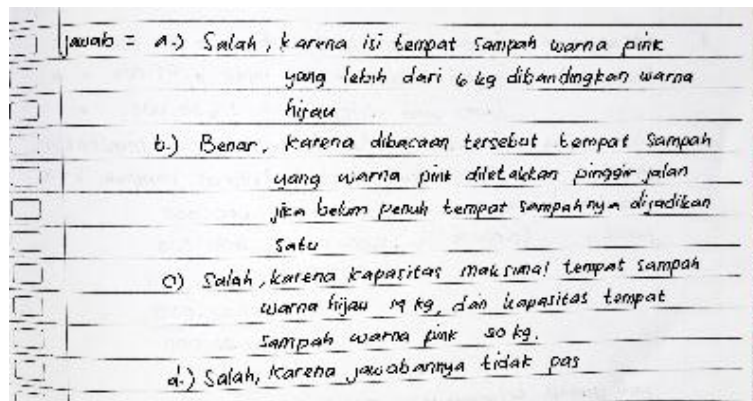 jawab = a.) Salah, karena isi tempat sampah warna pink
yang lebih dari 6 kg dibandingkan warna
hijau
b.) Benar, karena dibacaan tersebut tempat sampah
yang warna pink diletakkan pinggir jalan
jika belum penuh tempat sampahnya dijadikan
satu
c) Salah, karena kapasitas maksimal tempat sampah
warna hijau kg, dan kapasitas tempat
sampah warna pink 50 kg.
d.) Salah, karena jawabannya tidak pas